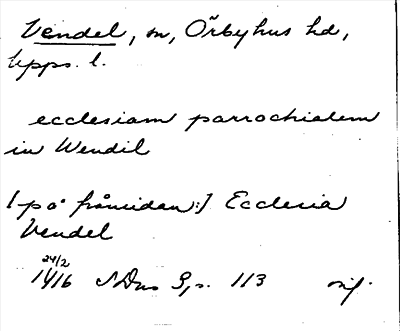 Vendel, sn, Örbyhus hd,
Upps. l.
ecclesiam parrochialem
in Wendil
[på framsidan:] Ecclesia
Vendel
24/2
1416 SDns 3, s. 113 orig.